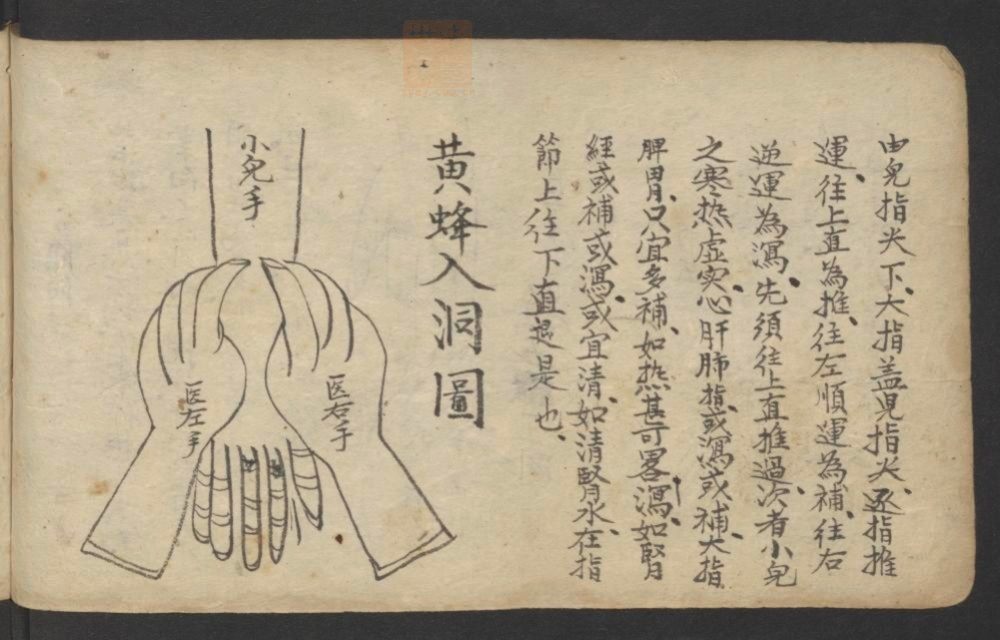 由兒指尖下、大指盖兒指尖、逐指推
運、往上直為推、往左順運為補、往右
逆運為瀉、先須往上直推過、次者小兒
之寒热虛实、心肝肺指、或瀉或補、大指
脾胃、只宜多補、如热甚可畧瀉、如腎
經或補或瀉、或宜清、如清腎水、在指
節上往下直退是也、
黄蜂入洞圖
小兒手
医右手
医左手